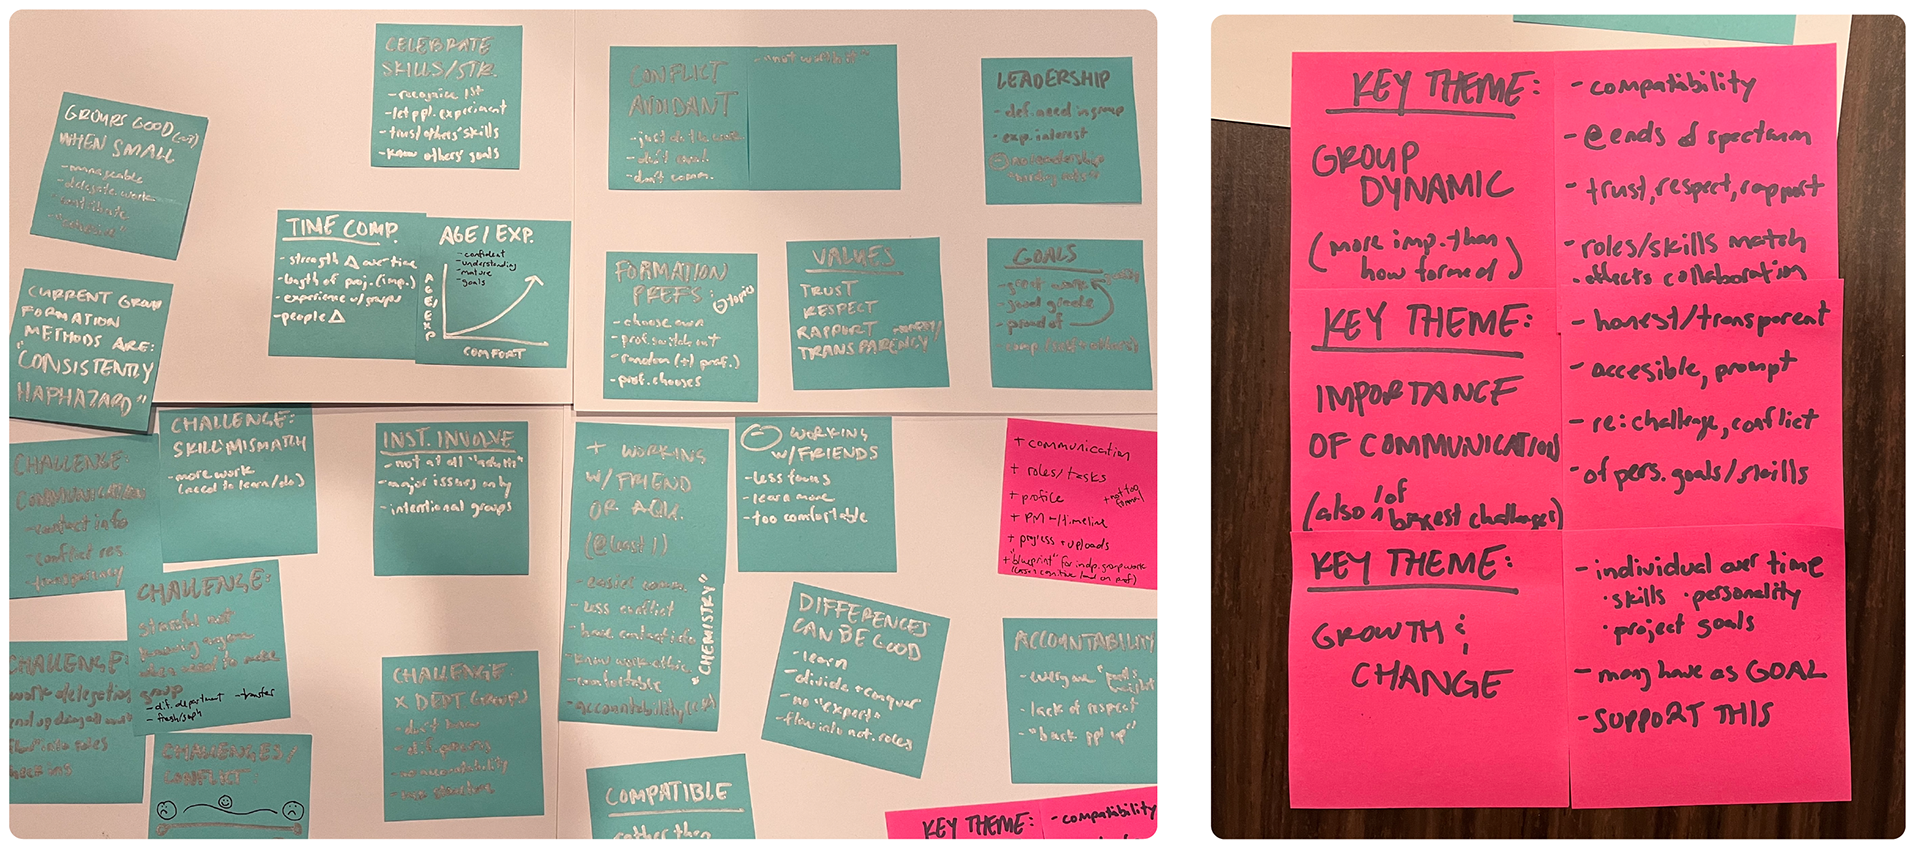 CELEBRATE
SKILLS/STR.
- recognize 1st
- let ppl. experiment
- trust others' skills
- know others' goals
GROUPS GOOD
WHEN SMALL
- manageable
- delegate work
- contribute
CONFLICT
AVOIDANT
- just do the work
- don't
- don't comm.
- not worth it"
LEADERSHIP
- def. need in group
- exp. interest
- no leadership
TIME COMP.
- strength Δ over time
- length of proj. (imp.)
- experience w/groups
- people Δ
AGE / EXP.
- confident
- understanding
- mature
- goals
AGE/EXP
COMFORT
FORMATION
PREFS:
topics
- choose own
- prof. switch out
- random (+/ prof.)
- prof. chooses
VALUES
TRUST
RESPECT
RAPPORT
TRANSPARENCY/
GOALS
- great work
- good grade
- proud of
CURRENT GROUP
FORMATION
METHODS ARE:
"CONSISTENTLY
HAPHAZARD"
CHALLENGE:
COMMUNICATION
- contact info
- conflict res.
- transparency
CHALLENGE:
SKILL MISMATCH
- more work
(need to learn/do)
INST. INVOLVE
- not at all "adults"
- major issues only
- intentional groups
+ WORKING
W/ FRIEND
OR AQU.
(@ least 1)
- easier comm.
- less conflict
- have contact info
- know work ethic
- comfortable
- accountability
"CHEMISTRY"
- WORKING
W/FRIENDS
- less focus
- learn more
- too comfortable
+ communication
+ roles/tasks
+ profile
+ not too formal
+ PM - /timeline
+ progress + uploads
+ "blueprint" for indp. group work
(less cognitive load on prof)
CHALLENGE:
stressful not
knowing anyone
when need to make
group
- dif. department - transfer
- fresh/soph
CHALLENGE:
work delegation
into roles
CHALLENGES/
CONFLICT
CHALLENGE
X DEPT GROUPS
- don't know
- no accountability
DIFFERENCES
CAN BE GOOD
- learn
- divide + conquer
- no "expert"
- flow into nat. roles
ACCOUNTABILITY
- everyone "pulls
weight"
- lack of respect
- "back ppl up"
COMPATIBLE
rather than
KEY THEME:
- compatibility
KEY THEME:
GROUP
DYNAMIC
(more imp. than
how formed)
- compatibility
- @ ends of spectrum
- trust, respect, rapport
- roles/skills match
- affects collaboration
KEY THEME:
IMPORTANCE
OF COMMUNICATION
(also 1 of
biggest challenges)
- honest/transparent
- accesible, prompt
- re: challenge, conflict
- of pers. goals/skills
KEY THEME:
GROWTH &
CHANGE
- individual over time
· skills · personality
· project goals
- many have as GOAL
- SUPPORT THIS